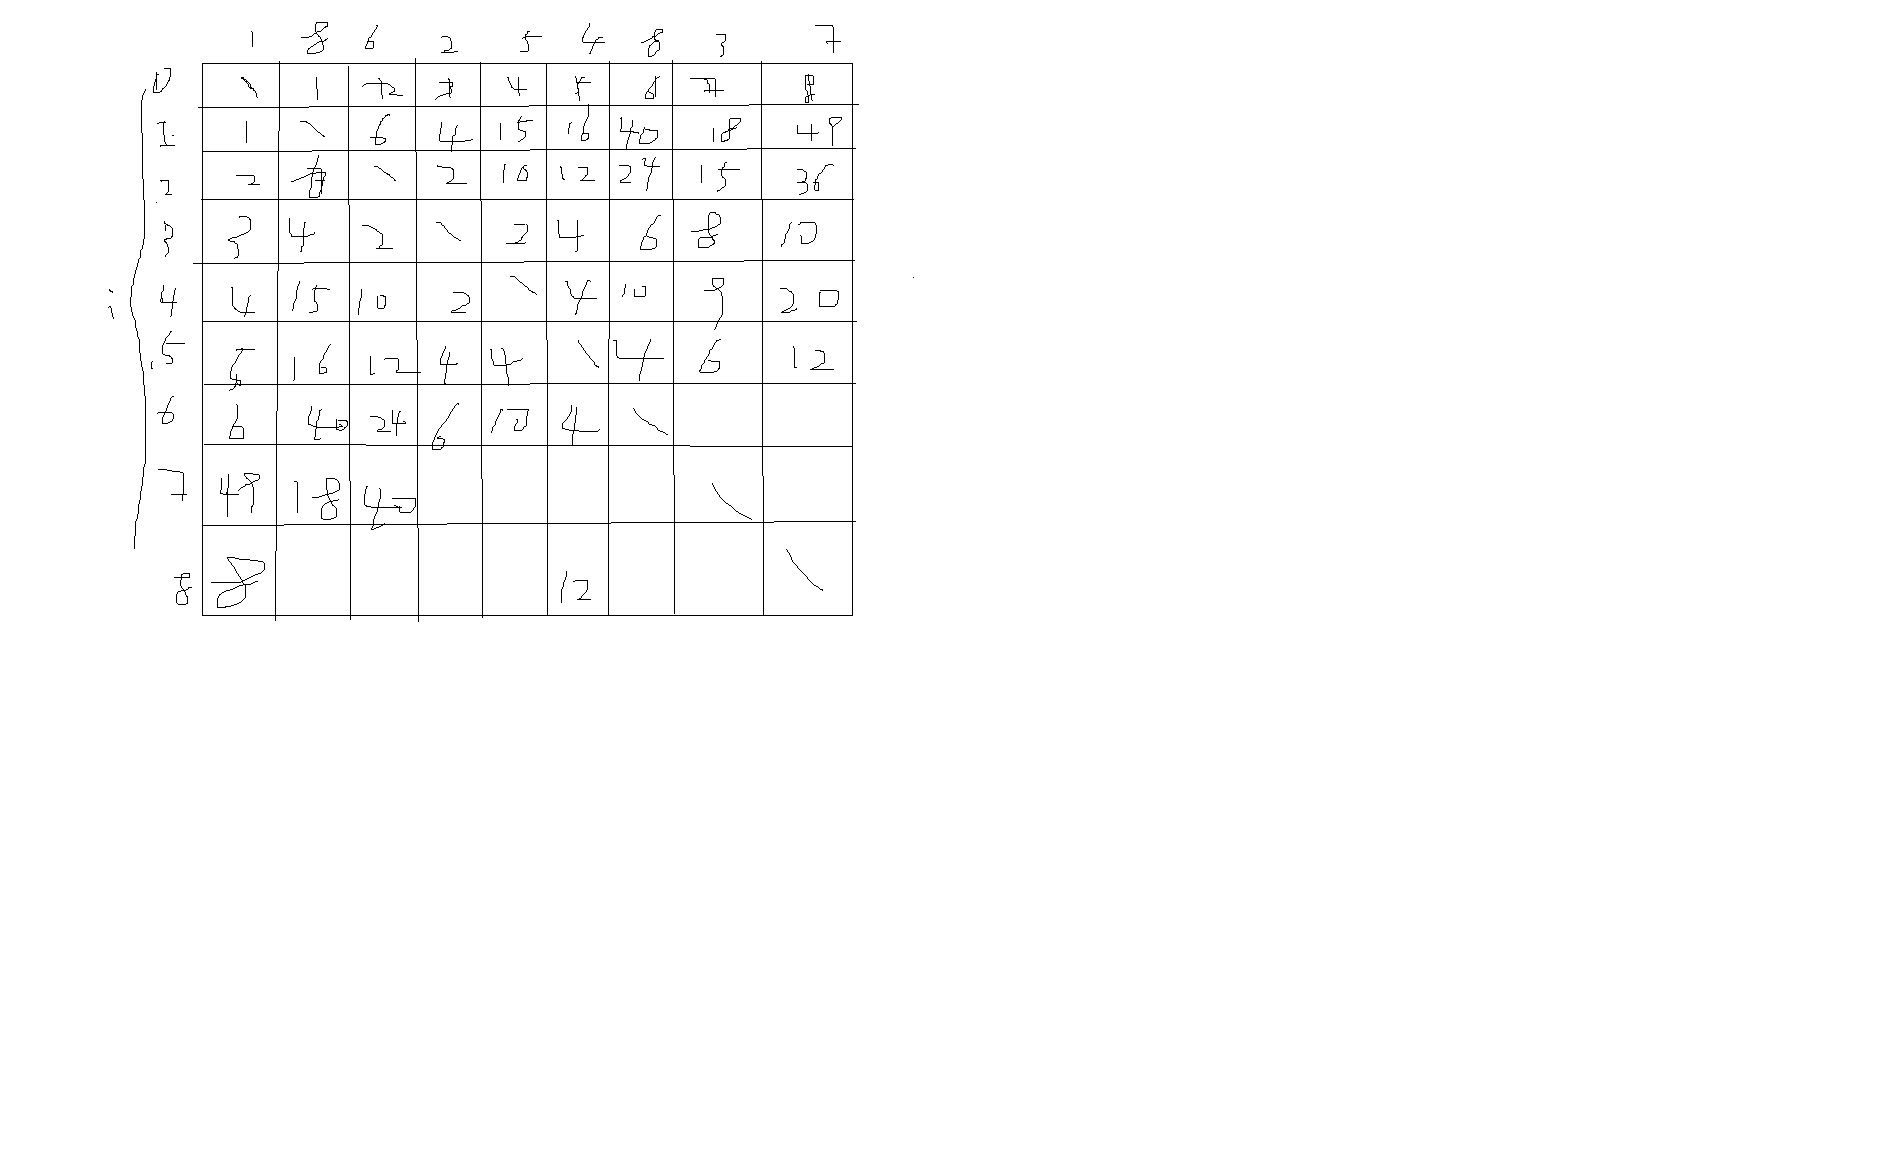 1 8 6 2 5 4 8 3 7
0 \ 1 2 4 6 7 8
1 1 \ 6 4 15 16 40 18 49
2 2 \ 2 10 12 24 15 36
3 3 4 2 \ 2 4 6 8 10
i 4 4 15 10 2 \ 4 10 9 20
5 5 16 12 4 4 \ 4 6 12
6 6 40 24 6 10 4 \
7 49 18 40 \
8 8 12 \